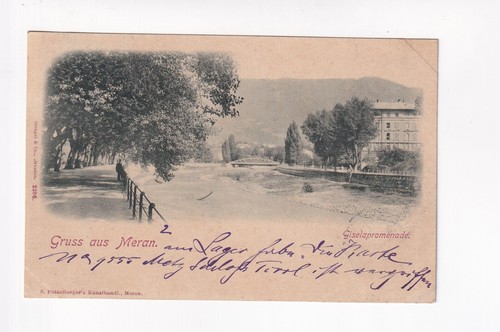 Gruss aus Meran.
Giselapromenade.
2
am Lager habe. Die Karte
No 1955 Metz Schloss Tirol ist vergriffen
S. Pötzelberger's Kunsthandl., Meran.
2206.